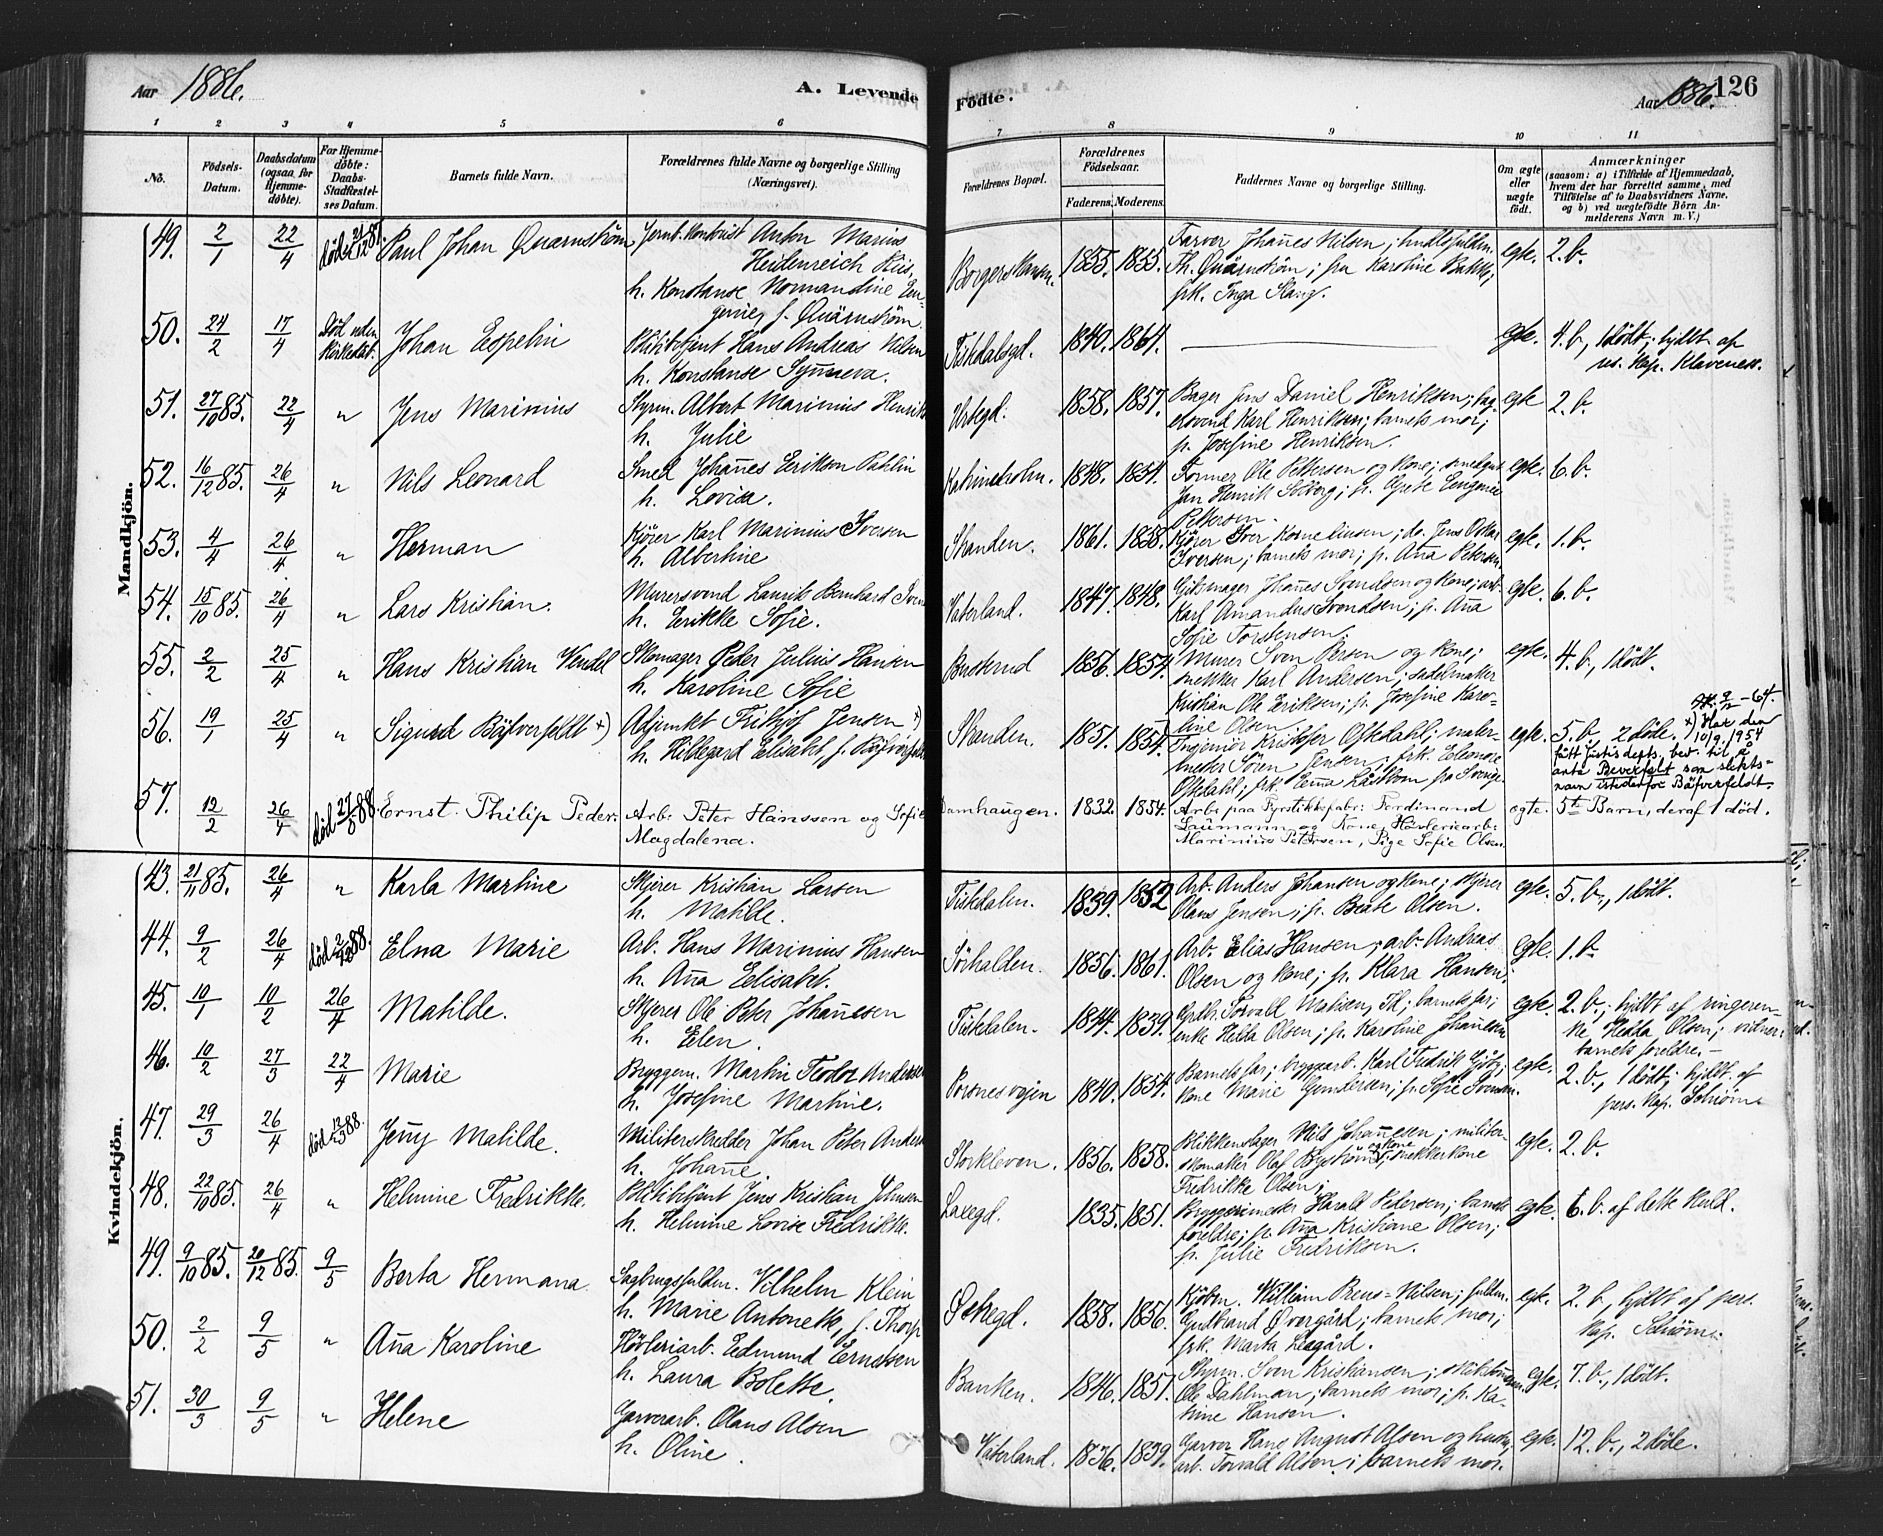 Aar 1886.
A. Levende
Födte.
Aar 1886.
126
1 2 3 4 5 6 7 8 9 10 11
No.
Födsels-Datum.
Daabsdatum (ogsaa for Hjemme-döbte).
For Hjemme-döbte: Daabs-Stadfæstel-ses Datum.
Barnets fulde Navn.
Forældrenes fulde Navne og borgerlige Stilling (Næringsvei).
Forældrenes Bopæl.
Forældrenes Födselsaar.
Faderens. Moderens.
Faddernes Navne og borgerlige Stilling.
Om ægte eller uægte födt.
Anmærkninger
(saasom: a) i Tilfælde af Hjemmedaab,
hvem der har forrettet samme, med
Tilföielse af to Daabsvidners Navne,
og b) ved uægtefödte Börn An-
melderens Navn m. V.)
Mandkjön.
49. 2/1 22/4 död 21/12 87. Paul Johan Quarnström
Anton Marius
Heidenreich Riis,
h. Konstanse Normandine Eu-
genie, f. Quärnström.
Borgerskansen. 1855. 1855.
Farver Johañes Nilsen; hndlsfuldm.
Th. Quärnström; fru Karoline Bakke;
frk. Inga Stang.
egte. 2. b.
50. 24/2 17/4 Död uden Kirkedåb. Johan Espelin
Politibetjent Hans Andreas Nilsen
h. Konstanse Syñeva.
Fiskdalsgd. 1840. 1864.
egte. 4. b, 1 dödt; hjdbt af
res. Kap. Klaveness.
51. 27/10 85. 22/4 " Jens Marinius
Styrm. Albert Marinius Henriks
h. Julie
1858. 1857.
Bager Jens Daniel Henriksen; bag-
ersvend Karl Henriksen; barnets mor;
p. Josefine Henriksen.
egte 2. b.
52. 16/12 85. 26/4 " Nils Leonard
Smed Johañes Erikson Pahlin
h. Lovisa.
Katrineholm. 1848. 1851.
Former Ole Pettersen og kone; smedgut
Jan Henrik Solberg; p. Agete Eugenie
Pettersen.
egte. 6. b.
53. 4/4 26/4 " Herman
Kjörer Karl Marinius Iversen
h. Albertine
Stranden. 1861. 1858.
Kjörer Iver Korneliusen; do. Jens Oskar
Iversen; barnets mor; p. Aña Petersen.
egte. 1. b.
54. 15/10 85. 26/4 " Lars Kristian.
Murersvend Laurits Bernhard Sven
h. Erikke Sofie.
Vaterland. 1847. 1848.
Gibsmager Johañes Svendsen og kone; arb.
Karl Amandus Svendsen; p. Aña
Sofie Torstensen.
egte. 6. b.
55. 2/2 25/4 " Hans Kristian Vendel
Skomager Peder Julius Hansen
h. Karoline Sofie
Buskerud 1856. 1854.
Murer Sven Persen og kone;
snekker Karl Andersen; sadelmaker
Kristian Ole Eriksen; p. Josefine Karo-
line Olsen
egte. 4. b., 1 dödt.
56. 19/1 25/4 " Sigurd Bäfverfeldt x)
Adjunkt Fritjof Jensen x)
h. Hildegard Elisabet, f. Bäfverfeldt
Stranden. 1851. 1854.
Ingeniör Kristofer Oftedahl; maler-
mester Sören Jensen; frk. Eleonore
Oftedahl; frk. Ema Läthbom fra Sverige
egte. 5. b 2 döde.
x) Har den
10/9. 1954
fått Justisdepts. bev. til å
anta Beverfelt som slekts-
navn istedetfor Bäfverfeldt.
57. 12/2 26/4 död 27/5 88. Ernst Philip Peder.
Arb. Peter Hanssen og Sofie
Magdalena.
Damhaugen. 1832. 1854.
Arb. paa Fyrstikkefabr: Ferdinand
Laumann og Kone, Hövleriearb.
Marinius Petersen, Pige Sofie Olsen
egte. 5te Barn, deraf 1 död.
Kvindekjön.
43. 21/11 85. 26/4 " Karla Martine
Skjerer Kristian Larsen
h. Matilde.
Fiskdalen. 1839. 1852
Arb. Anders Johansen og kone; skjerer
Olaus Jensen; p. Beate Olsen.
egte. 5. b., 1 dödt.
44. 9/2 26/4 Elna Marie
Arb. Hans Marinius Hansen
h. Aña Elisabet.
Sörhalden. 1856. 1861.
Arb. Elias Hansen; arb. Andreas
Olsen og kone; p. Klara Hansen.
egte. 1. b.
45. 10/1 10/2 26/4 Matilde.
Skjerer Ole Peter Johañesen
h. Elen.
Fiskdalen. 1844. 1839.
Torvald Madsen, Tl; barnets far;
enke Hedda Olsen; p. Karoline Johañesen
egte. 2. b.; hjdbt af ringeren-
ke Hedda Olsen; vidner
barnets foreldre.
46. 10/2 27/3 22/4 Marie
Bryggem. Martin Teodor Andersen
h. Josefine Martine.
Porsnesvejen 1840. 1854.
Barnets far; bryggearb. Karl Fredrik Götz;
kone Marie Gundersen; p. Sofie Svensen.
egte. 2. b., 1 dödt; hjdbt. af
pers. Kap. Schiörn
47. 29/3 26/4 död 12/3 88. Jeñy Matilde.
Militerskredder Johan Peter Anders
h. Johañe.
Storkleven. 1856. 1858.
Blikkenslager Nils Johañesen; militer-
skomaker Olaf Byström og kone; snekkerkone
Fredrikke Olsen;
egte. 2. b.
48. 22/10 85. 26/4 " Helmine Fredrikke.
Politibetjent Jens Kristian Johnsen
h. Helmine Lovise Fredrikke.
Laxegd. 1835. 1851.
Bryggerimester Harald Pedersen; barnets
foreldre; p. Aña Kristiane Olsen;
p. Julie Fredriksen.
egte. 6. b. af dette kuld.
49. 9/10 85. 20/12 85. 9/5 Berta Hermana
Sagbrugsfuldm. Vilhelm Klein
h. Marie Antonette, f. Thorp
1858. 1856.
Kjöbm. William Prens-Nilsen; fuldm.
Gudbrand Övergård; barnets mor;
frk. Marta Leegård.
egte. 2. b, hjdbt af pers.
Kap. Schiörn.
50. 2/2 9/5 " Aña Karoline
Hövleriarb. Edmund Ernstsen
h. Laura Bolette.
Banken. 1846. 1851.
Styrm. Sven Kristiansen;
Ole Dahlman; barnets mor; p. Ka-
trine Hansen.
egte. 7. b., 1 dödt.
51. 30/3 9/5 " Helene
Garverarb. Olaus Alsen
h. Oline.
Vaterland. 1836. 1839.
Garver Hans August Alsen og hustru;
arb. Torvald Alsen; barnets mor.
egte. 12. b., 2 döde.